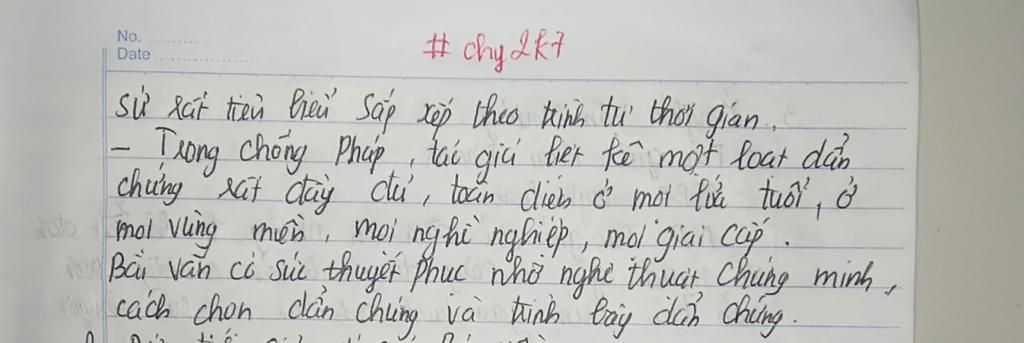 No. ............
Date ....................
# chy2k7
sử rất tiêu biểu sắp xếp theo trình tự thời gian.
- Trong chống Pháp, tác giả liệt kê một loạt dẫn
chứng rất đầy đủ, toàn diện ở mọi lứa tuổi, ở
mọi vùng miền, mọi nghề nghiệp, mọi giai cấp.
Bài văn có sức thuyết phục nhờ nghệ thuật chứng minh,
cách chọn dẫn chứng và trình bày dẫn chứng.